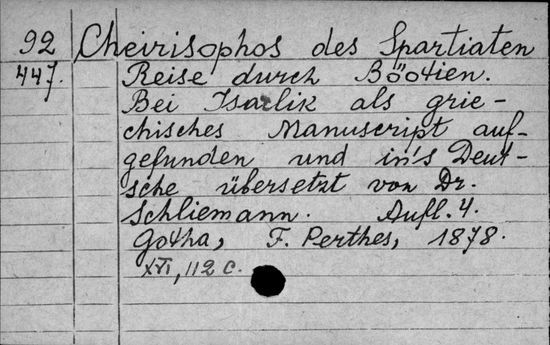 92 Cheirisophos des Spartiaten
447. Reise durch Böotien.
Bei Isarlik als grie-
chisches Manuscript auf-
gefunden und in's Deut-
sche übersetzt von Dr.
Schliemann. Aufl. 4.
Gotha, F. Perthes, 1878.
XVI, 112 c.